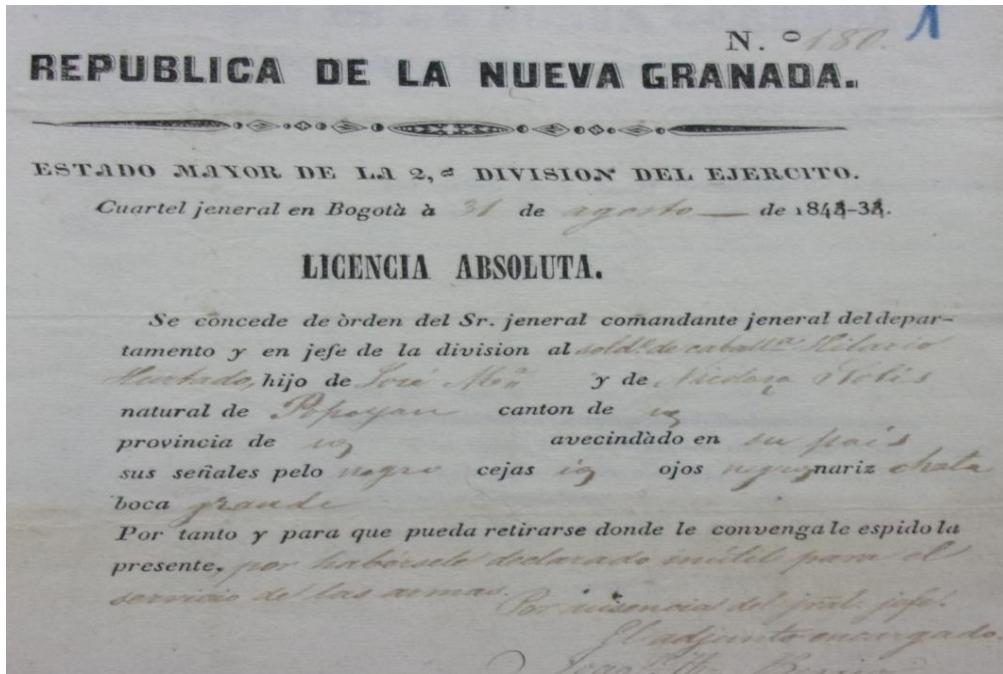 N.º 180. 1
REPUBLICA DE LA NUEVA GRANADA.
ESTADO MAYOR DE LA 2,ª DIVISION DEL EJERCITO.
Cuartel jeneral en Bogotà à 31 de agosto — de 184-33.
LICENCIA ABSOLUTA.
Se concede de òrden del Sr. jeneral comandante jeneral del depar-
tamento y en jefe de la division al sold.º de caball.ª Hilario
Hurtado, hijo de José M.ª y de
natural de Popayan canton de id
provincia de id avecindàdo en su pais
sus señales pelo negro cejas id ojos negros nariz chata
boca grande
Por tanto y para que pueda retirarse donde le convenga le espido la
presente, por habérsele declarado inútil para el
servicio de las armas. Por ausencia del jral. jefe.
El adjunto encargado.